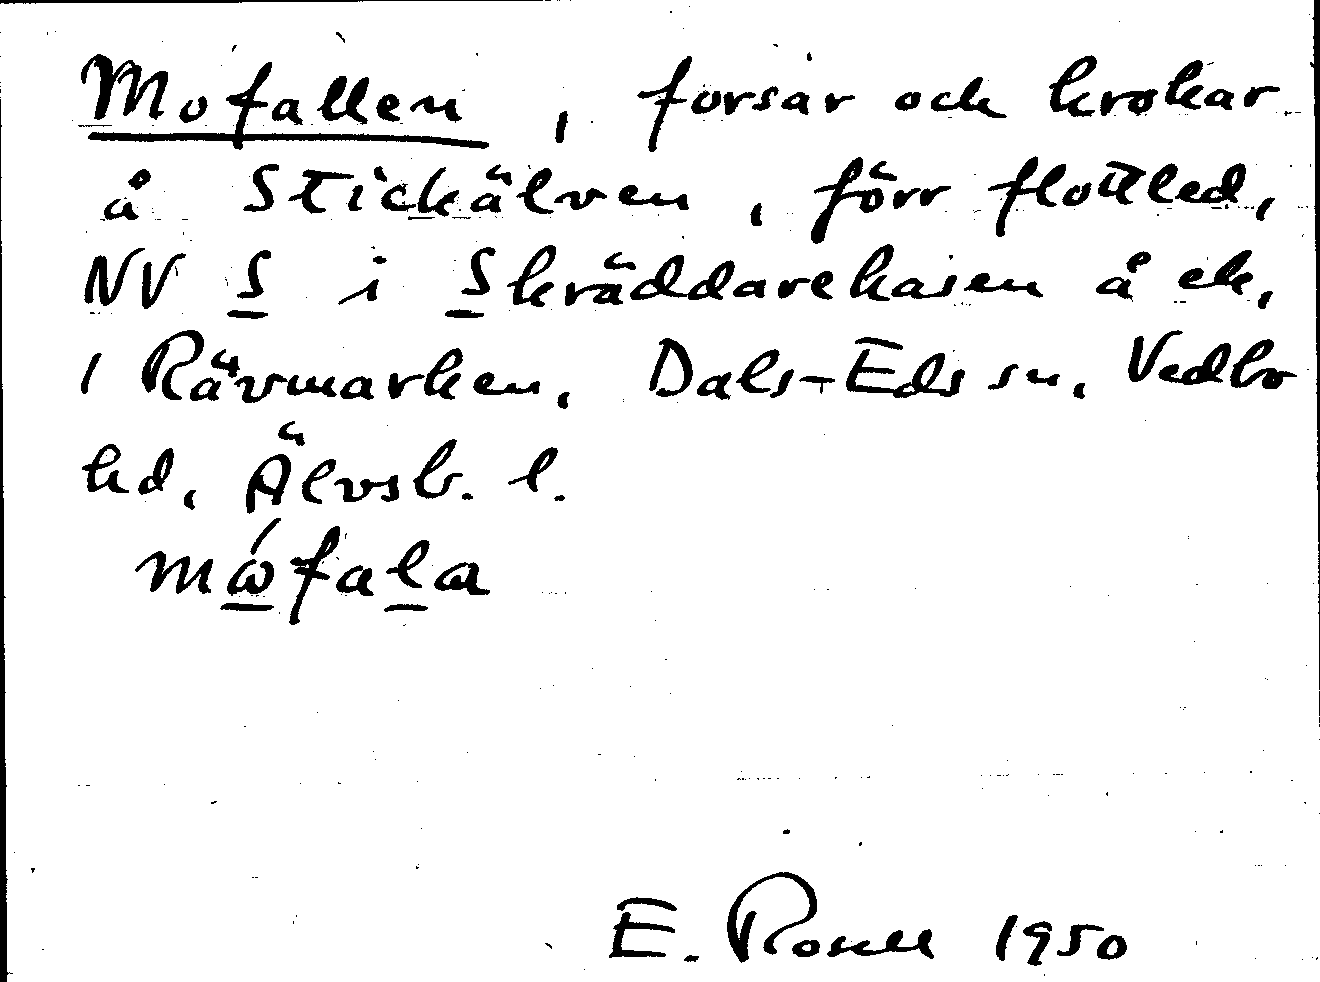 Mofallen, forsar och krokar
å Stickälven, förr flottled,
NV S i Skräddarekasen å ek.
i Rävmarken, Dals-Eds sn, Vedbo
hd, Älvsb. l.
mófala
E. Rosell 1950